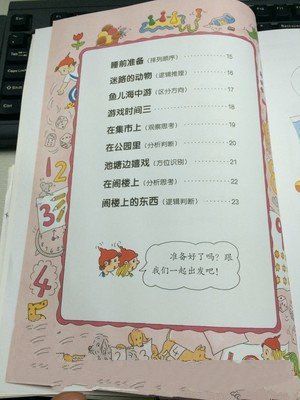 睡前准备（排列顺序）……………15
迷路的动物（逻辑推理）…………16
鱼儿海中游（区分方向）…………17
游戏时间三………………………18
在集市上（观察思考）……………19
在公园里（分析判断）……………20
池塘边嬉戏（方位识别）…………21
在阁楼上（分析思考）……………22
阁楼上的东西（逻辑判断）………23
准备好了吗？跟
我们一起出发吧！
12
3
4